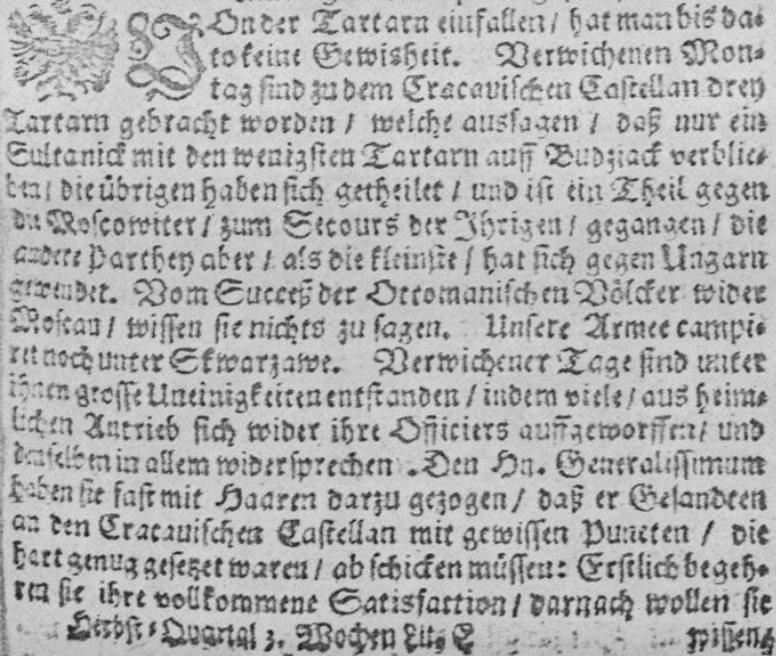 VOn der Tartarn einfallen / hat man bis da-
to keine Gewisheit. Verwichenen Mon-
tag sind zu dem Cracauischen Castellan drey
Tartarn gebracht worden / welche aussagen / daß nur ein
Sultanick mit den wenigsten Tartarn auff Budziack verblie-
ben / die übrigen haben sich getheilet / und ist ein Theil gegen
die Moscowiter / zum Secours der Ihrigen / gegangen / die
andere Parthey aber / als die kleinste / hat sich gegen Ungarn
gewendet. Vom Succeß der Ottomanischen Völcker wider
Moscau / wissen sie nichts zu sagen. Unsere Armee campi-
ret noch unter Skwarzawe. Verwichener Tage sind unter
ihnen grosse Uneinigkeiten entstanden / indem viele / aus heim-
lichen Antrieb sich wider ihre Officiers auffgeworffen / und
denselben in allem widersprechen. Den Hn. Generalissimum
haben sie fast mit Haaren darzu gezogen / daß er Gesandten
an den Cracauischen Castellan mit gewissen Puncten / die
hart genug gesetzet waren / abschicken müssen: Erstlich begeh-
ren sie ihre vollkommene Satisfaction / darnach wollen sie
Herbst-Quartal 3. Wochen Lit. E wissen /